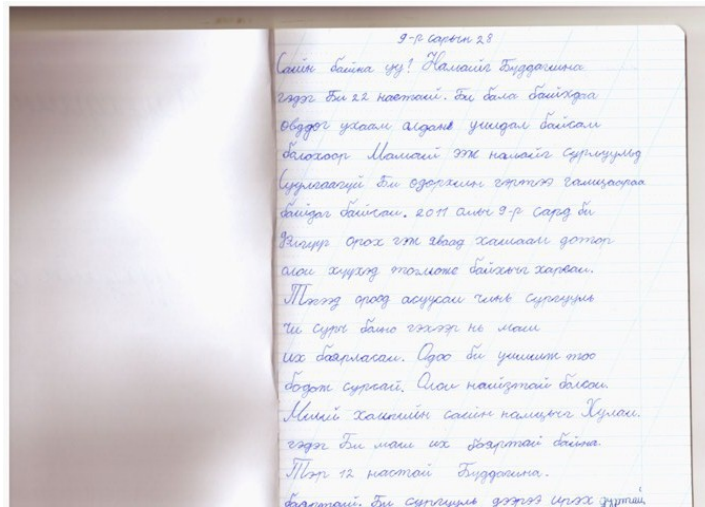 9-р сарын 28
Сайн байна уу? Намайг Буддагшина
гэдэг Би 22 настай. Би бага байхдаа
овддог ухаан алдань унидал байсан
болохоор Манай ээж намайг сургуульд
Суулгаагүй Би одорхин гэртээ ганцаараа
байдаг байсан. 2011 оны 9-р сард би
Дэлгүүр орох гэж яваад хашаан дотор
олон хүүхэд тоглож байхыг харсан.
Тэгээд ороод асуусан чинь сургууль
чи сурч болно гэхээр нь маш
их баярласан. Одоо би уншиж тоо
бодож сурсан. Олон найзтай болсон.
Миний хамгийн сайн найзыг Хулан.
гэдэг Би маш их баяртай байна.
Тэр 12 настай Буддагшина.
баяртай. Би сургууль дээрээ ирэх дуртай